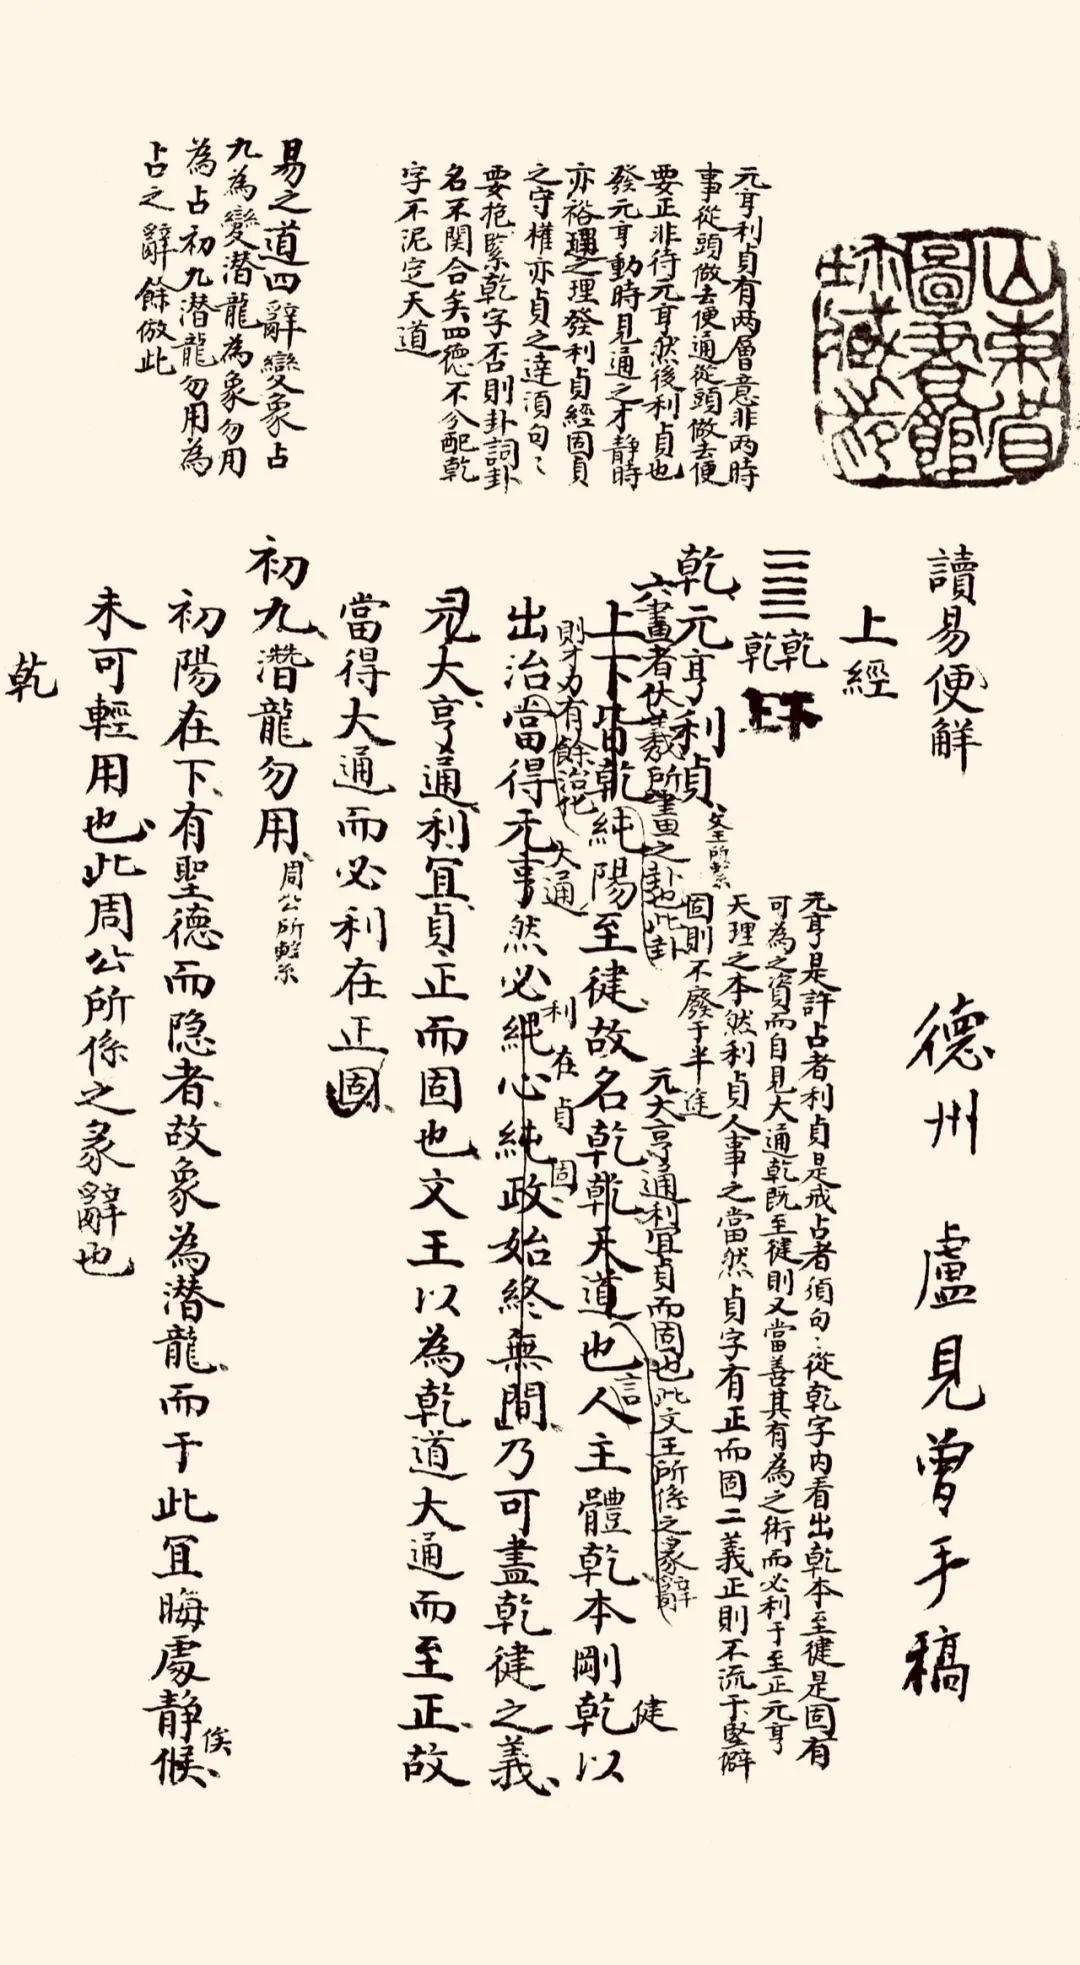 山東省
圖書館
珍藏印
讀易便解
德州盧見曾手稿
上經
乾下
乾上
乾元亨利貞
文王所繫
元亨是許占者利貞是戒占者須句〻從乾字內看出乾本至健是固有
可為之資而自見大通乾既至健則又當善其有為之術而必利于至正元亨
天理之本然利貞人事之當然貞字有正而固二義正則不流于堅僻
固則不廢于半途
六畫者伏羲所畫之卦也此卦
元大亨通利宜貞而固也此文王所係之彖辭
上下皆乾純陽至健故名乾乾天道也人主體乾本剛乾以
言
健
則才力有餘治化
大通
利在貞固
出治當得元亨然必純心純政始終無間乃可盡乾健之義
元大亨通利宜貞正而固也文王以為乾道大通而至正故
當得大通而必利在正固
初九潛龍勿用
周公所繫
初陽在下有聖德而隐者故象為潜龍而于此宜晦處静候
俟
未可輕用也此周公所係之象辭也
乾
元亨利貞有两層意非两時
事從頭做去便通從頭做去便
要正非待元亨然後利貞也
發元亨動時見通之才静時
亦裕通之理發利貞經固貞
之守權亦貞之達須句〻
要抱緊乾字否則卦詞卦
名不関合矣四德不分配乾
字不泥定天道
易之道四辭變象占
九為變潜龍為象勿用
為占初九潜龍勿用為
占之辭餘倣此